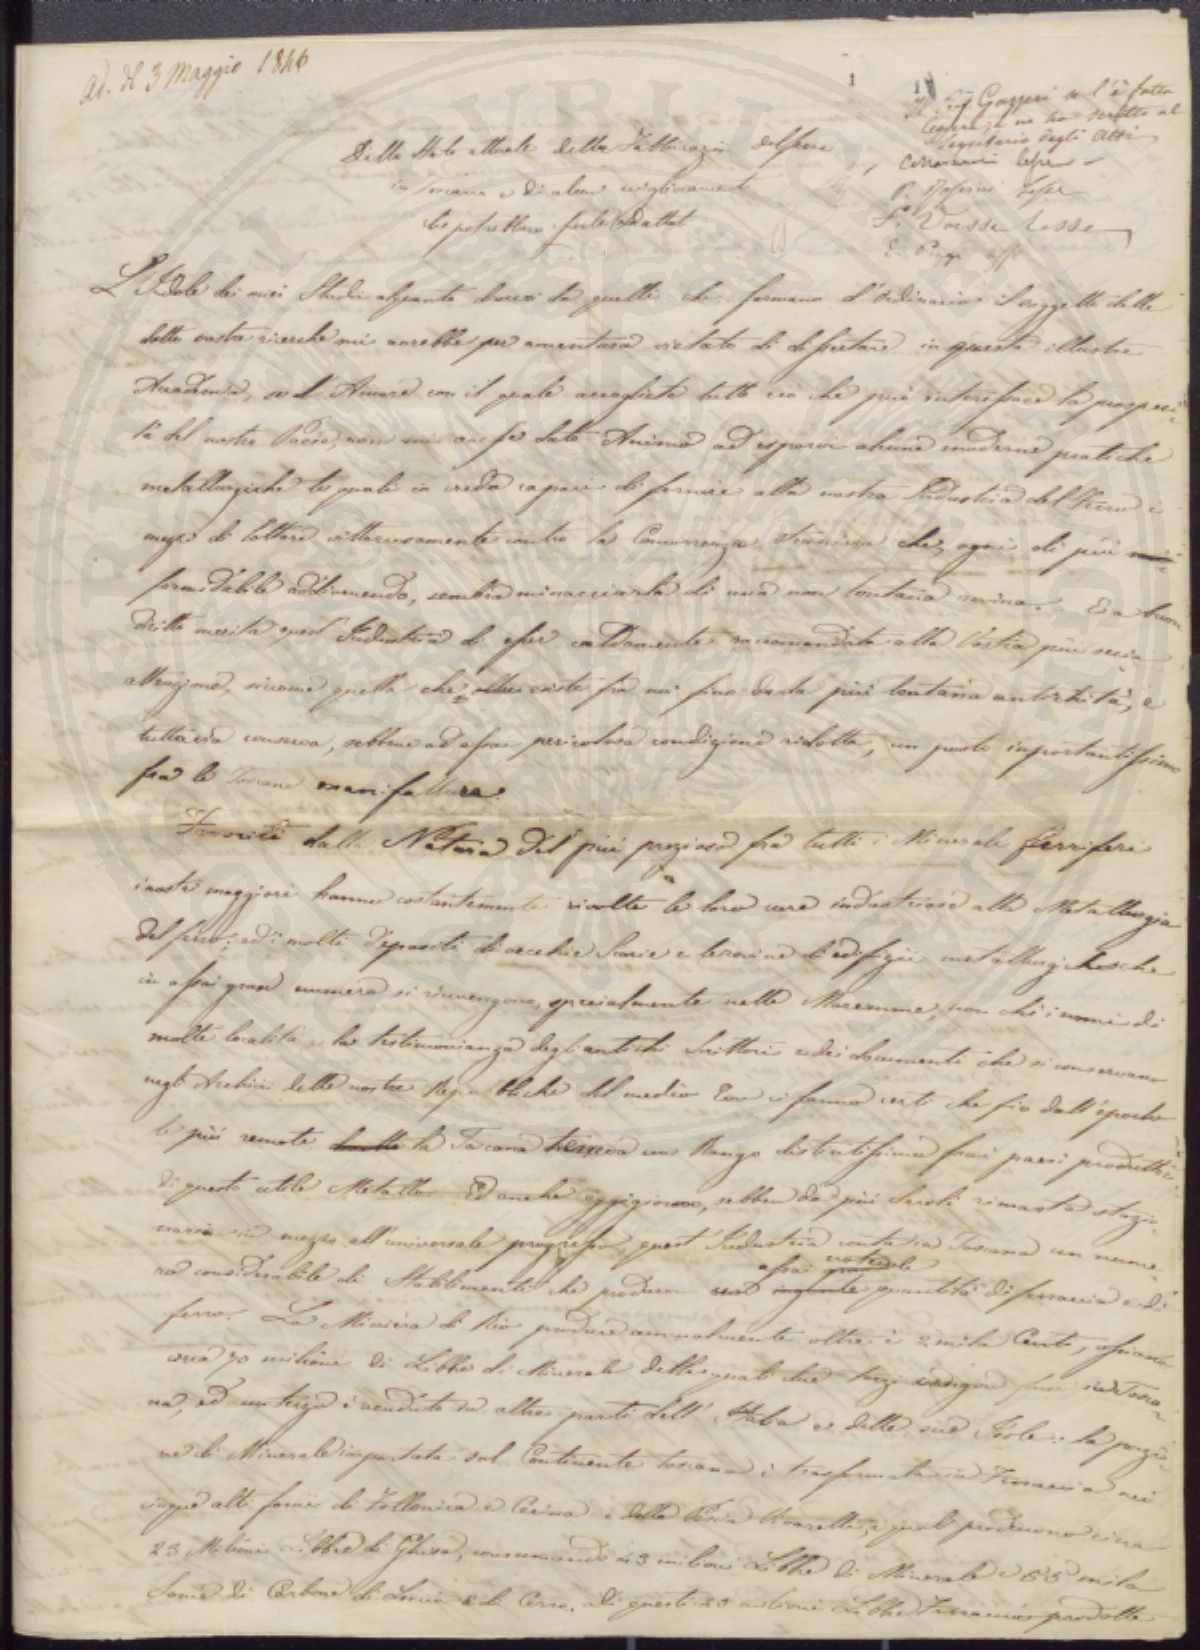 Ad. del 3 Maggio 1846
1
Il Sig. Gazzeri se l'è fatta
leggere, e ne ha scritto al
Segretario degli Atti
Dello Stato attuale della Fabbricazione del ferro
in Toscana e di alcuni miglioramenti
che potrebbero farle adottati
L'Indole dei miei Studii alquanto diversi da quelli che formano d'ordinario il soggetto delle
dotte vostre ricerche mi avrebbe per avventura vietato di dissertare in questa illustre
Accademia, se l'Amore con il quale accogliete tutto ciò che può interessare la prosperi-
tà del nostro Paese, non mi avesse dato Animo ad esporvi alcune moderne pratiche
metallurgiche le quali io credo capaci di fornire alla nostra Industria del Ferro i
mezzi di lottare vittoriosamente contro la Concorrenza straniera che, ogni dì più
formidabile addivenendo, sembra minacciarla di una non lontana rovina. E a buon
dritto merita quest'Industria di esser caldamente raccomandata alla Vostra più seria
attenzione, siccome quella che esiste fra noi fino dalla più lontana antichità, e
tuttavia conserva, sebbene ad assai pericolosa condizione ridotta, un posto importantissimo
fra le Toscane manifatture.
Favoriti dalla Natura del più prezioso fra tutti i Minerali ferriferi
i nostri maggiori hanno costantemente rivolte le loro cure industriose alla Metallurgia
del ferro; ed i molti depositi di vecchie Scorie e le rovine di edifizii metallurgici che
in assai gran numero si rinvengono, specialmente nelle Maremme, non che i nomi di
molte località, la testimonianza degli antichi Scrittori e dei documenti che si conservano
negli Archivi delle nostre Repubbliche del medio Evo ci fanno certi che fin dall'epoche
le più remote la Toscana teneva un Rango distintissimo frai paesi produttori
di questo utile Metallo. Ed anche oggigiorno, sebben da più Secoli rimasta stazio-
naria in mezzo all'universale progresso, quest'Industria conta in Toscana un nume-
ro considerabile di Stabilimenti che producono assai notevole quantità di ferraccio e di
ferro. La Miniera di Rio produce annualmente oltre a 2 mila Cento, ossiano
circa 70 milioni di Libbre di Minerale delle quali due terzi vengon fusi in Tosca-
na, ed un terzo è venduto in altre parti dell'Italia e delle sue Isole: la porzio-
ne di Minerale importata sul Continente toscano è trasformata in Ferraccio nei
cinque alti forni di Follonica e Cecina e della Pescia Fiorentina, i quali producono circa
23 Milioni Libbre di Ghisa, consumando 43 milioni Libbre di Minerale e 65 mila
Some di Carbone di Leccio e di Cerro. Di questi 23 milioni Libbre Ferraccio prodotte